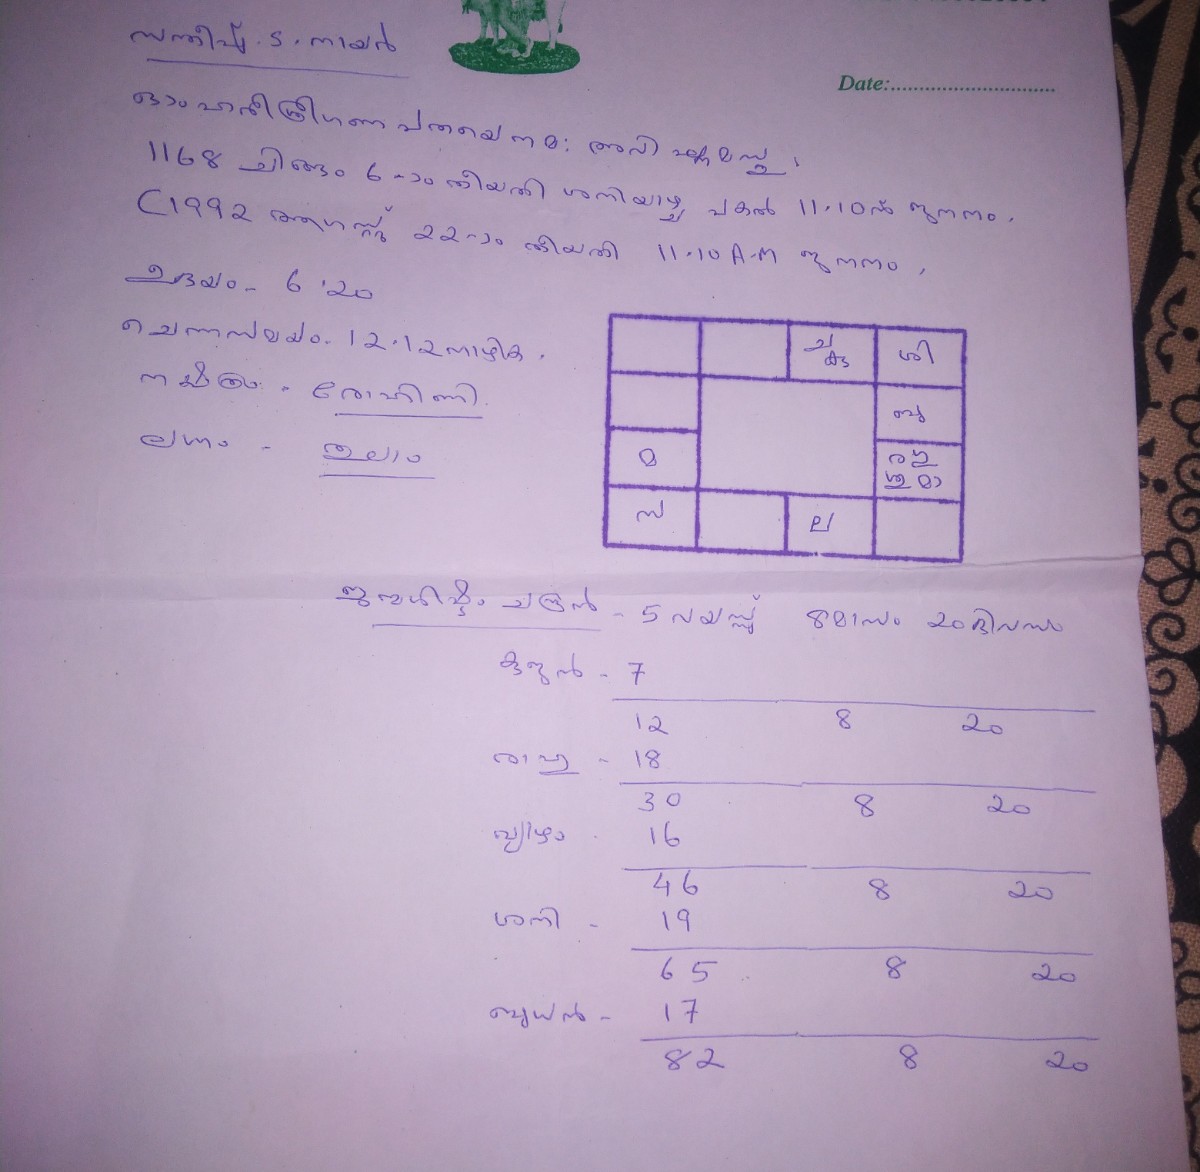 സന്തീപ്. S. നായർ
Date:
ഓം ഹരിശ്രീഗണപതയെ നമ: അവിഘ്നമസ്തു,
1168 ചിങ്ങം 6-ാം തീയതി ശനിയാഴ്ച പകൽ 11.10ന് ജനനം.
(1992 ആഗസ്റ്റ് 22-ാം തീയതി 11.10 A.M ജനനം,
ഉദയം - 6.20
ചെന്നസമയം. 12.12 നാഴിക.
നക്ഷത്രം - രോഹിണി.
ലഗ്നം - തുലാം
ച കു ശി
ബു
മ ര
മാ
സ ല
ജന്മശിഷ്ടം ചന്ദ്രൻ - 5 വയസ്സ് 8 മാസം 20 ദിവസം
കുജൻ - 7
12 8 20
രാഹു - 18
30 8 20
വ്യാഴം - 16
46 8 20
ശനി - 19
65 8 20
ബുധൻ - 17
82 8 20